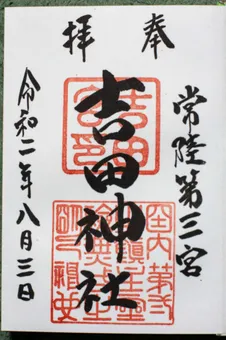 奉拝
常陸第三宮
吉田神社
令和二年八月三日